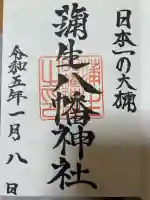 日本一の大楠
蒲生八幡神社
令和五年一月八日